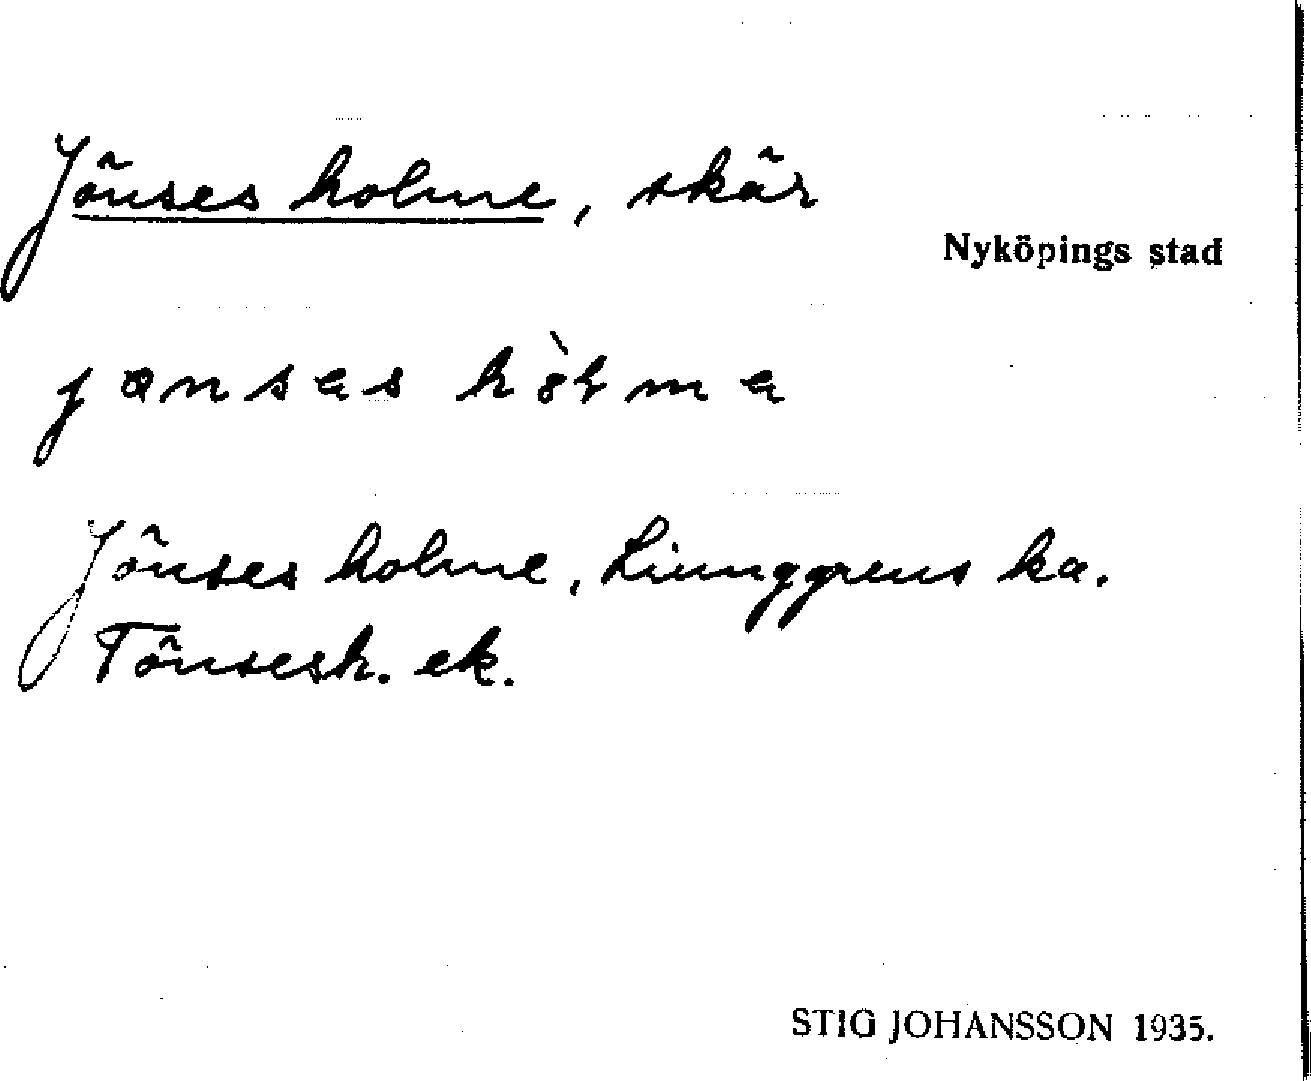 Jönses holme, skär
Nyköpings stad
jønsəs hòlmə
Jönses holme, Liunggrens ka.
Tönsesh. ek.
STIG JOHANSSON 1935.